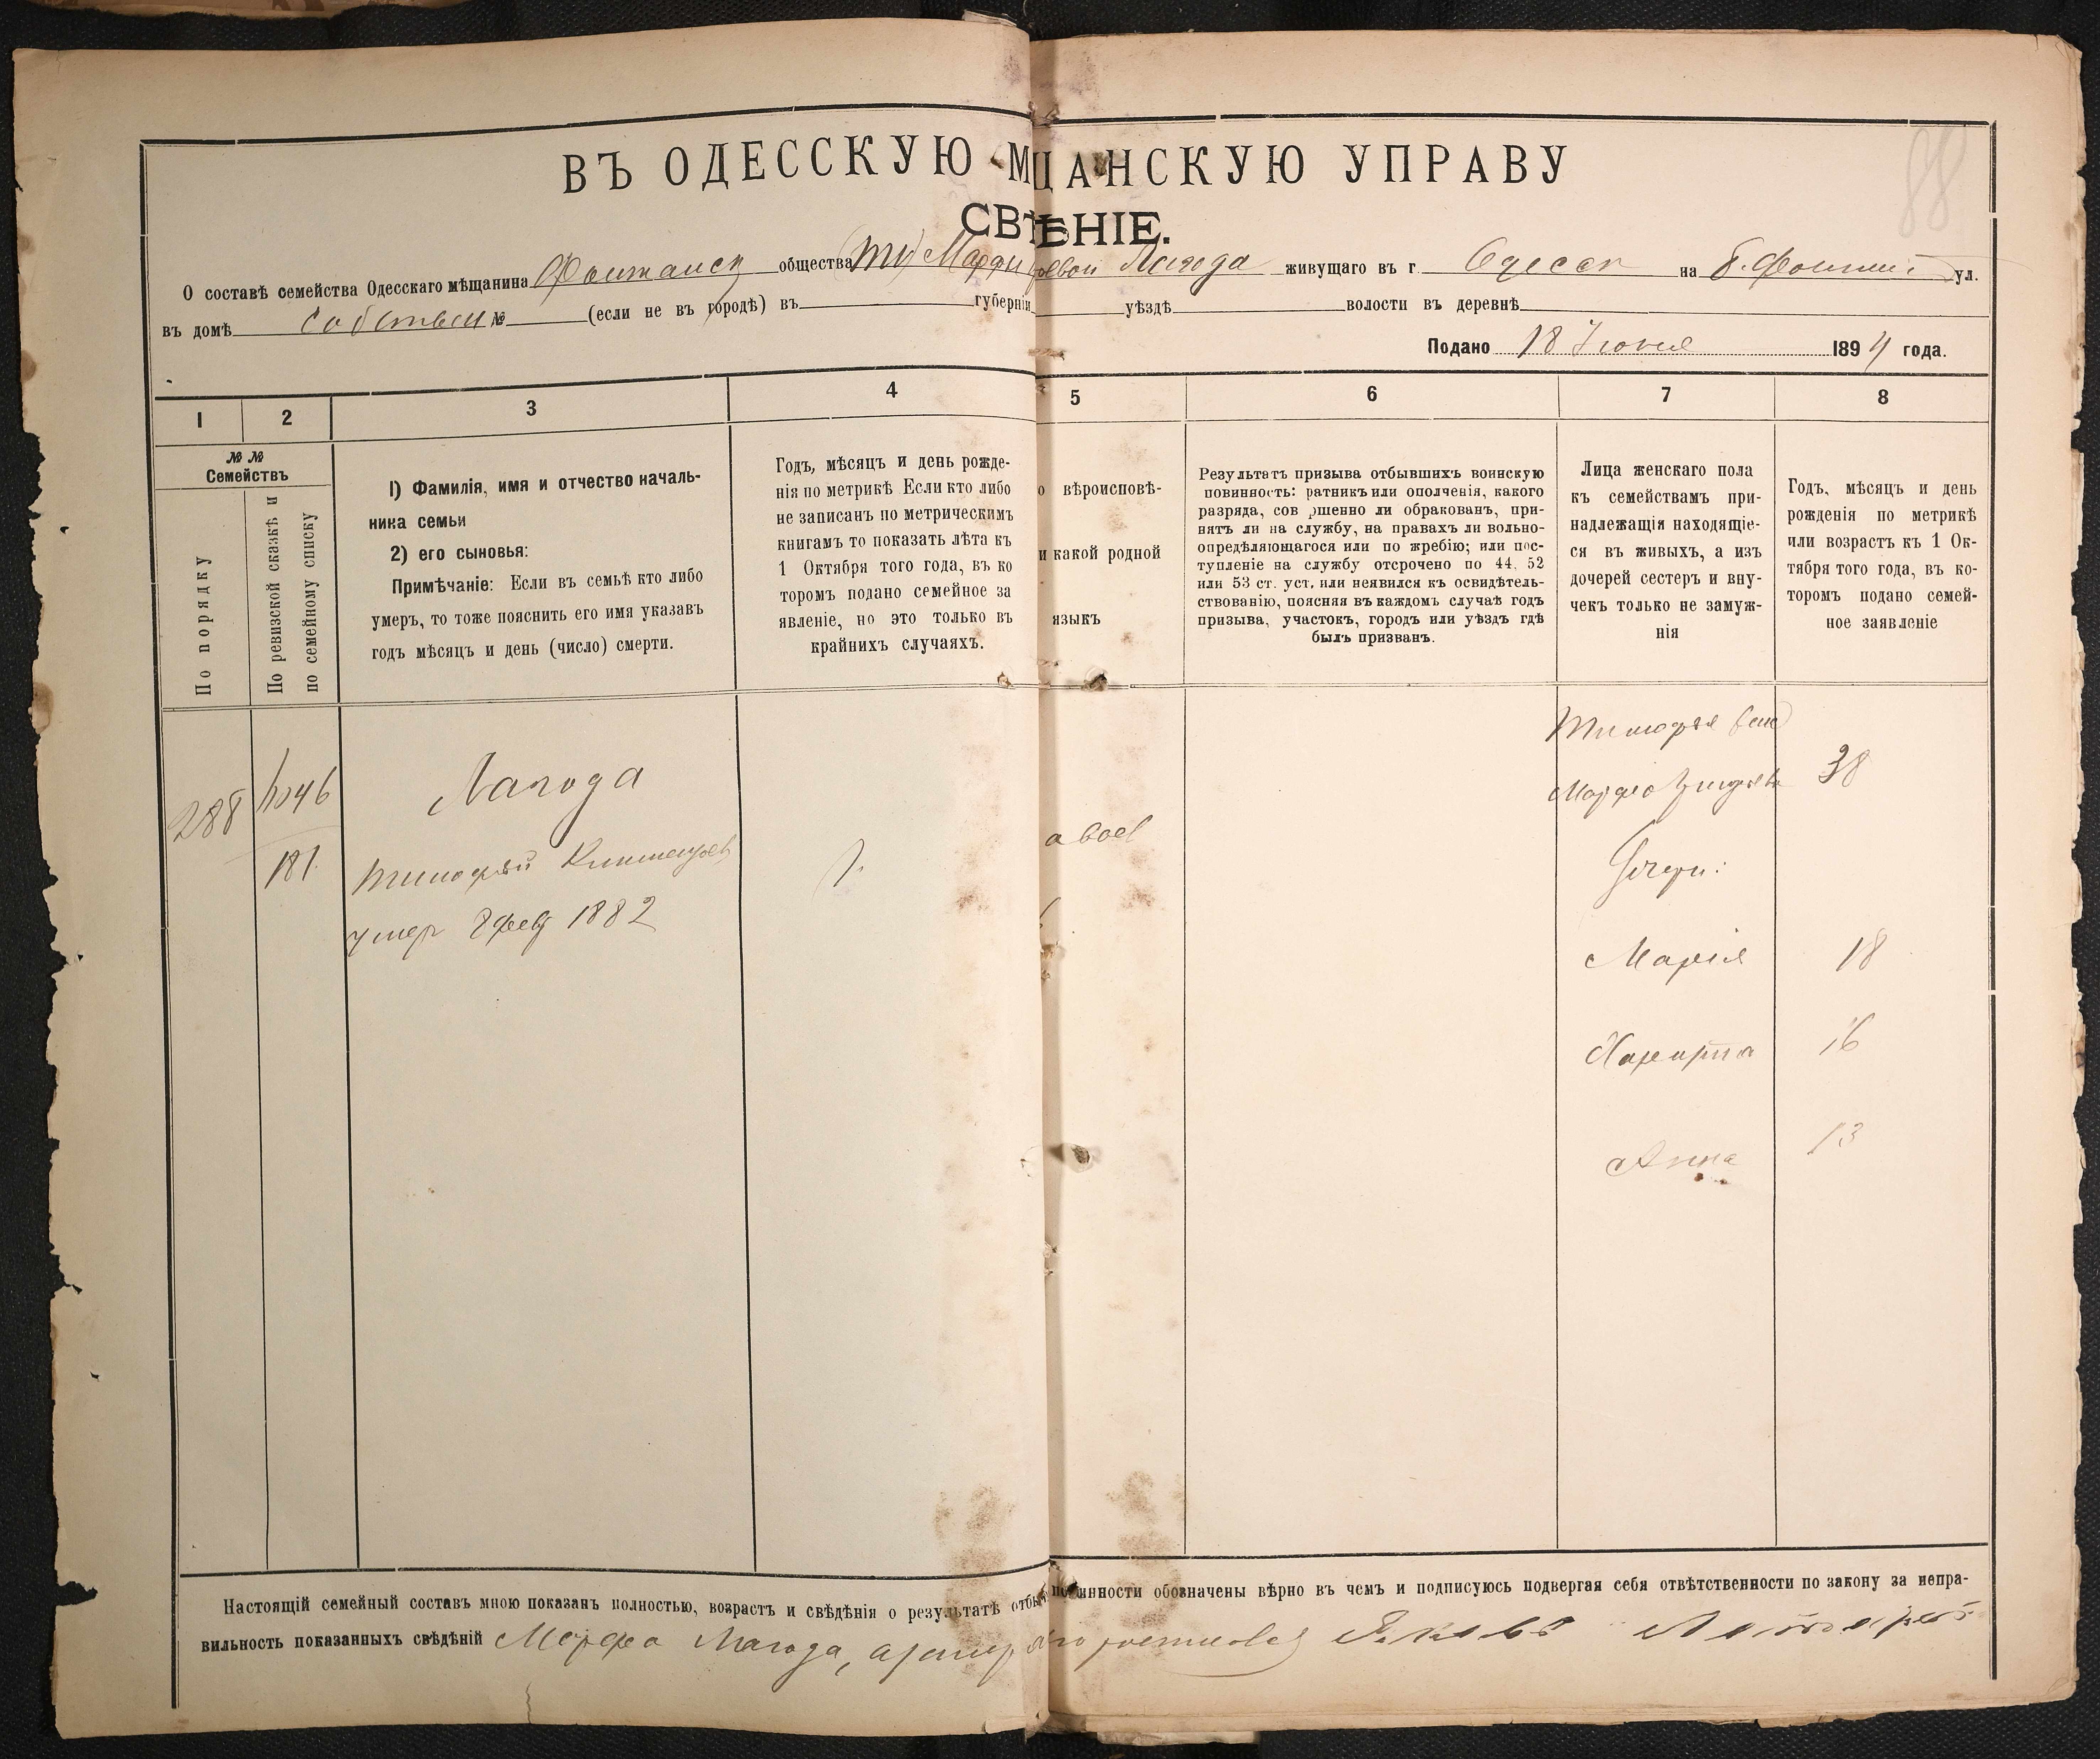 88
ВЪ ОДЕССКУЮ МЩАНСКУЮ УПРАВУ
СВѢНІЕ.
О составѣ семейства Одесскаго мѣщанина Фонтанск общества Марфи Лагода живущаго въ г. Одессѣ на Б. Фонтан ул.
въ домѣ собствен № (если не въ городѣ) въ губерніи уѣздѣ волости въ деревнѣ
Подано 18 Іюня 1894 года.
1 2 3 4 5 6 7 8
№ №
Семействъ
По порядку
По ревизской сказкѣ и
по семейному списку
1) Фамилія, имя и отчество началь-
ника семьи
2) его сыновья:
Примѣчаніе: Если въ семьѣ кто либо
умеръ, то тоже пояснить его имя указавъ
годъ мѣсяцъ и день (число) смерти.
Годъ, мѣсяцъ и день рожде-
нія по метрикѣ Если кто либо
не записанъ по метрическимъ
книгамъ то показать лѣта къ
1 Октября того года, въ ко
торомъ подано семейное за
явленіе, но это только въ
крайнихъ случаяхъ.
о вѣроисповѣ-
и какой родной
языкъ
Результатъ призыва отбывшихъ воинскую
повинность: ратникъ или ополченія, какого
разряда, сов ршенно ли обракованъ, при-
нятъ ли на службу, на правахъ ли вольно-
опредѣляющагося или по жребію; или пос-
тупленіе на службу отсрочено по 44, 52
или 53 ст. уст, или неявился къ освидѣтель-
ствованію, поясняя въ каждомъ случаѣ годъ
призыва, участокъ, городъ или уѣздъ гдѣ
былъ призванъ.
Лица женскаго пола
къ семействамъ при-
надлежащія находящіе-
ся въ живыхъ, а изъ
дочерей сестеръ и вну-
чекъ только не замуж-
нія
Годъ, мѣсяцъ и день
рожденія по метрикѣ
или возрастъ къ 1 Ок-
тября того года, въ ко-
торомъ подано семей-
ное заявленіе
Тимофея
288
Лагода
Марфа
38
181
Тимофей Климентьев
умер 8 фев 1882
Дочери:
Марія 18
Харитина 16
Анна 13
Настоящій семейный составъ мною показанъ полностью, возрастъ и свѣдѣнія о результатѣ отбы повинности обозначены вѣрно въ чемъ и подписуюсь подвергая себя отвѣтственности по закону за непра-
вильность показанныхъ свѣдѣній Марфа Лагода, Яковъ